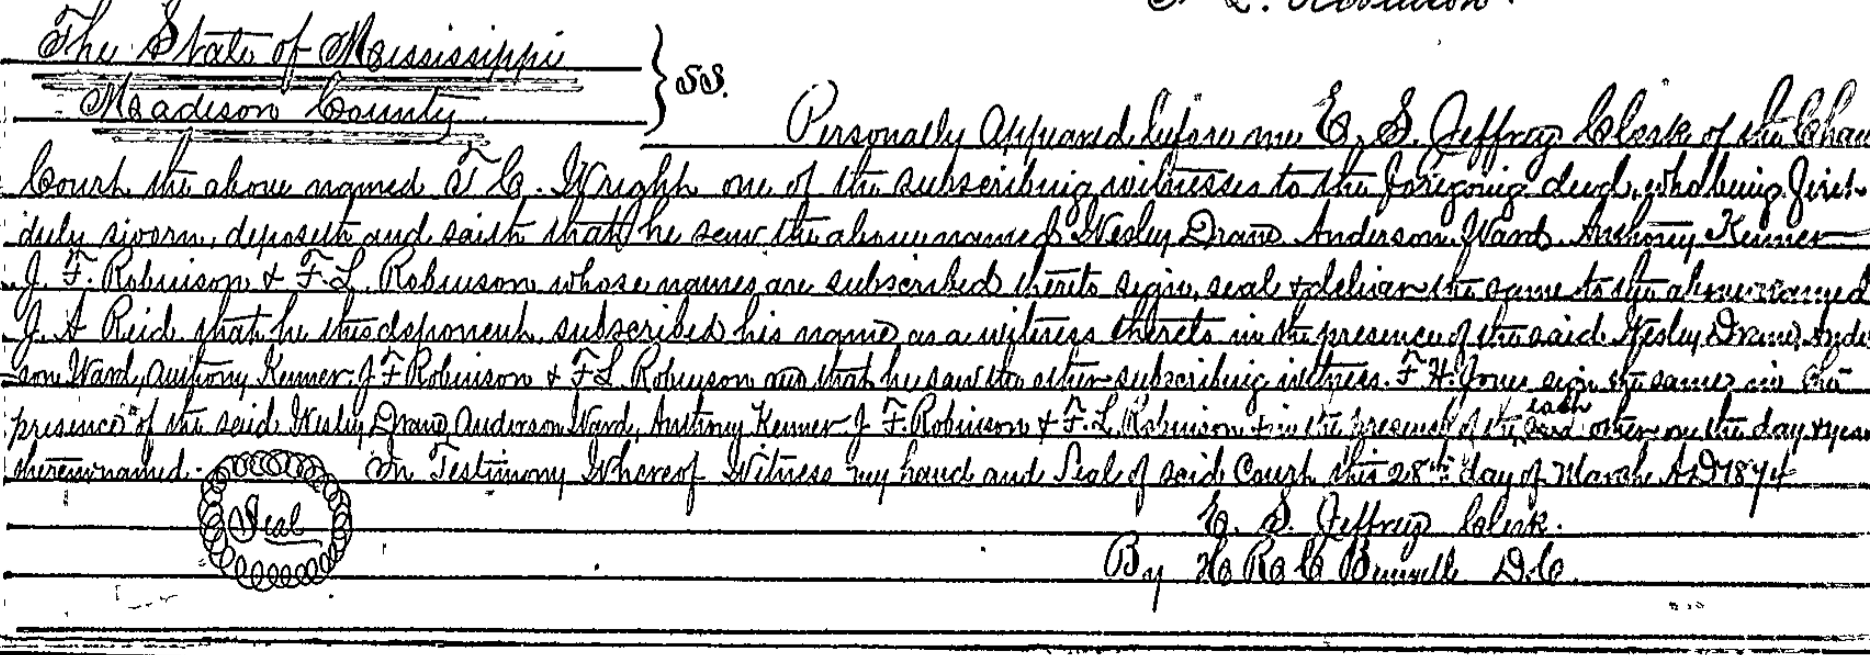 F. L. Robinson.
The State of Mississippi
Madison County } SS.
Personally Appeared before me E. S. Jeffrey Clerk of the Chan
Court the above named T C. Wright one of the subscribing witnesses to the foregoing deed, who being first
duly sworn, deposeth and saith that he saw the above named Wesley Drane Anderson Ward Anthony Kenner
J. F. Robinson & F. L. Robinson whose names are subscribed thereto sign, seal & deliver the same to the above named
J. A Reid that he this deponent, subscribed his name as a witness thereto in the presence of the said Wesley Drane, Ander
son Ward, Anthony Kenner J F Robinson & F L Robinson and that he saw the other subscribing witness. F. H. Jones sign the same in the
presence of the said Wesley Drane Anderson Ward, Anthony Kenner J F. Robinson & F. L Robinson & in the presence of the each other on the day & year
therein named. In Testimony Whereof Witness my hand and Seal of said Court this 28th day of March A.D 1874
Seal
E. S. Jeffrey Clerk.
By D.C.